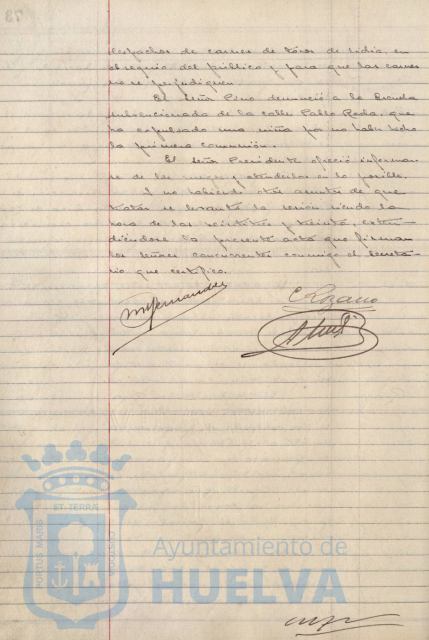 despachos de carnes de toros de lidia, en
obsequio del público y para que las carnes
no se perjudiquen.
El Señor Pino denunció a la Escuela
subvencionada de la calle Pablo Rada, que
ha expulsado una niña por no haber hecho
la primera comunión.
El Señor Presidente ofreció informar-
se de los ruegos y atenderlos en lo posible.
Y no habiendo otros asuntos de que
tratar se levantó la sesión siendo la
hora de las veintitrés y treinta, exten-
diéndose la presente acta que firman
los señores concurrentes conmigo el Secreta-
rio que certifico.
C Lozano
PORTUS MARIS
ET TERRÆ
CUSTODIA
Ayuntamiento de
HUELVA